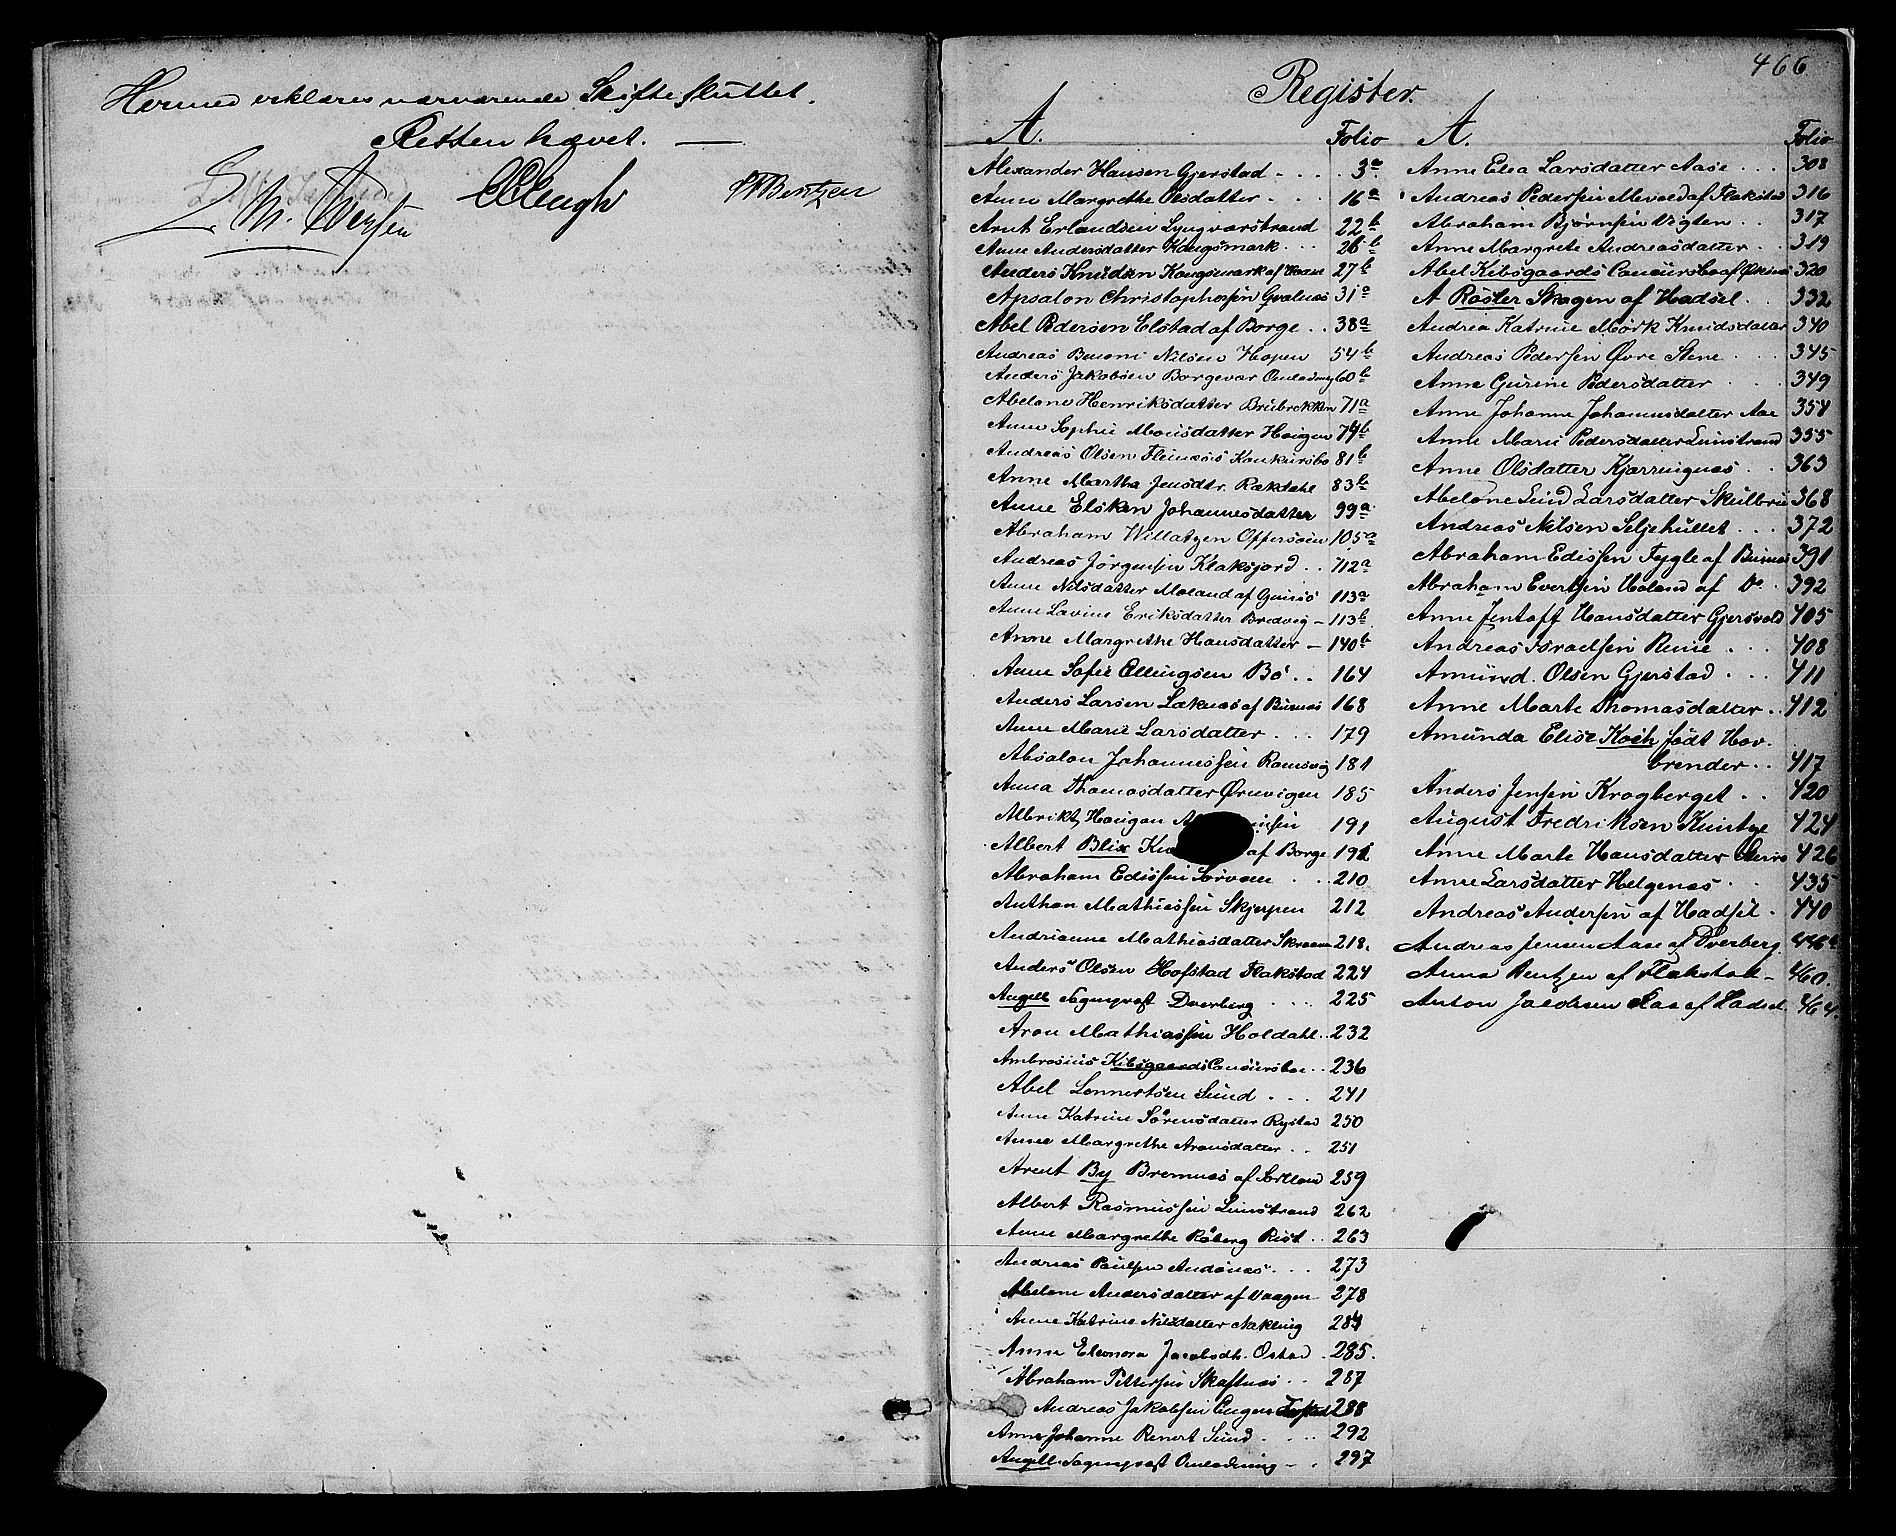 Hermed erklæres nærværende Skifte sluttet.
Retten hævet. —
466
Register.
A. Folio
Alexander Hansen Gjerstad - . . . 3a
Anne Margrethe Olsdatter . . . 16a
Arnt Erlandsen Lyngværstrand 22b
Anne Andersdatter Kongsmark . . . 26b
Anders Knudsen Kongsmark af 27b
Apsalon Christophersen Gvalnæs 31a
Abel Pedersen Elstad af Borge . . 38a
Andreas Benoni Nilsen Hopen 54b
Anders Jakobsen Borgevær 60b
Abelone Henriksdatter Brubrekken 71a
Anne Sophie Monsdatter Haugen 74b
Andreas Olsen Fleinæs's Konkursbo 81b
Anne Martha Jensdtr. Rækdahl 83b
Anne Elsken Johannesdatter 99a
Abraham Willatzen Offersøen 105a
Andreas Jørgensen Klaksjord . . 112a
Anne Nilsdatter Moland af Gimsø 113a
Anne Lavine Eriksdatter Bredvig - 113b
Anne Margrethe Hansdatter - 140b
Anne Sofie Ellingsen Bø . . 164
Anders Larsen Laknæs af Buxnæs 168
Anne Marie Larsdatter . . . 179
Absalon Johannessen Ramsvig 181
Anna Thomasdatter Ørnvigen 185
Albrikt Haugan 191
Albert Blix af Borge 192
Abraham Edissen Sørvaen . . . 210
Anthon Mathiassen Skjerpen 212
Andrianne Mathiasdatter 218.
Anders Olsen Hofstad Flakstad 224
Angell Sogneprest Dverberg . . . 225
Aron Mathiassen Holdahl . . 232
Ambrosius Kibsgaards . . 236
Abel Lennertsen Sund . . . 241
Anne Katrine Sørensdatter Rystad 250
Anne Margrethe Aronsdatter . . 251
Arent By Bremnes af Sortland 259
Albert Rasmussen Limstrand 262
Anne Margrethe Røberg Rist . . 263
Andreas Paulsen Andsnæs . . . 273
Abelone Andersdatter af Vaagen 278
Anne Katrine Nilsdatter Nakling 284
Anne Eleonora Jacobsdtr. Ostad . 285.
Abraham Pettersen Skaftnæs . . 287
Andreas Jakobsen Engen 288
Anne Johanne Renert Sund . . . 292
Angell Sogneprest - . 297
A. Folio
Anne Elea Larsdatter Aase . . . 308
Andreas Pedersen af Flakstad 316
Abraham Bjørnsen Vigten . . 317
Anne Margrete Andreasdatter . . 319
Abel Kibsgaards 320
A Røsler Skagen af Hadsel . . 332
Andrea Katrine Mørk Knudsdatter 340
Andreas Pedersen Øvre Stene . . . 345
Anne Gurine Pedersdatter . . . 349
Anne Johanne Johannesdatter Aae 354
Anne Marie Pedersdatter Limstrand 355
Anne Olsdatter Kjærringnæs . . 363
Abelone Lind Larsdatter 368
Andreas Nilsen Seljehullet . . . 372
Abraham Edissen Fygle af Buxnæs 391
Abraham Evertsen Holand af Do . 392
Anne Jentoff Hansdatter Gjersvold 405
Andreas Israelsen Reine . . . 408
Amund. Olsen Gjerstad . . . 411
Anne Marte Thomasdatter . . 412
Amunda Elise Koch født Hov-
brender . . 417
Anders Jensen Krogberget . . 420
August Fredriksen 424
Anne Marte Hansdatter 426
Anne Larsdatter Helgenæs . . 435
Andreas Andersen af Hadsel . 440
Andreas Jensen Aase af Dverberg.
Anna Bentzen af Flakstad - 460.
Anton Jacobsen af Hadsel. 464.